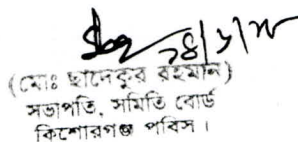 ২৪/১/২৩
(মোঃ ছাদেকুর রহমান)
সভাপতি, সমিতি বোর্ড
কিশোরগঞ্জ পবিস।